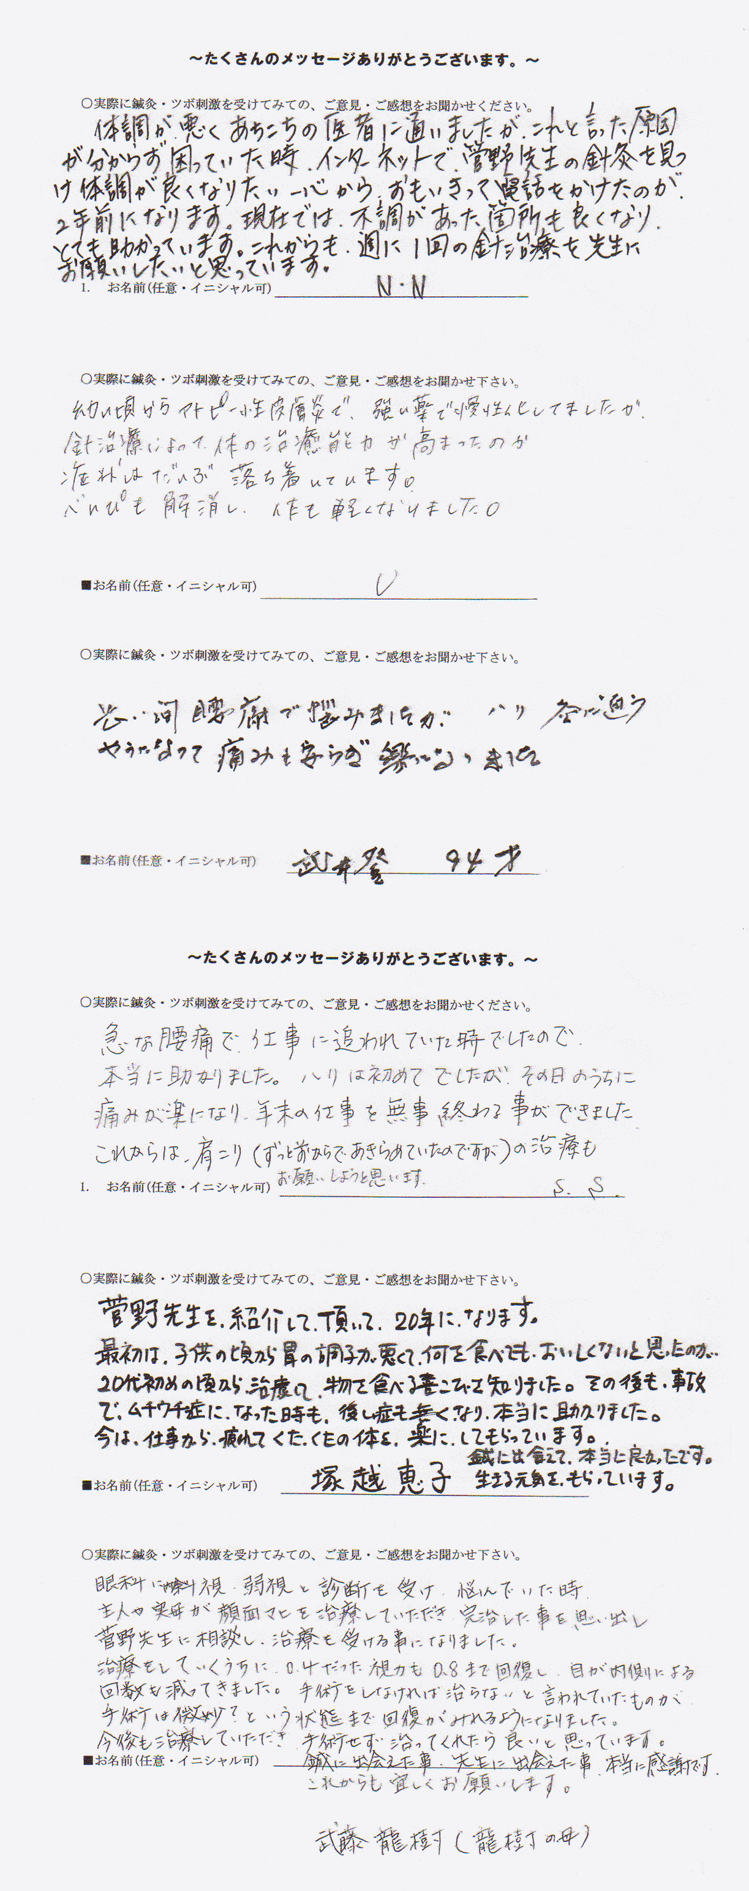 ～たくさんのメッセージありがとうございます。～
○実際に鍼灸・ツボ刺激を受けてみての、ご意見・ご感想をお聞かせください。
体調が悪くあちこちの医者に通いましたが、これと言った原因
が分からず困っていた時、インターネットで、菅野先生の針灸を見つ
け体調が良くなりたい一心から、おもいきって電話をかけたのが、
2年前になります。現在では、不調があった箇所も良くなり、
とても助かっています。これからも、週に1回の針治療を先生に
お願いしたいと思っています。
1. お名前(任意・イニシャル可) N・N
○実際に鍼灸・ツボ刺激を受けてみての、ご意見・ご感想をお聞かせ下さい。
幼い頃からアトピー性皮膚炎で、強い薬で慢性化してましたが、
針治療によって、体の治癒能力が高まったのか
症状はだいぶ落ち着いています。
べんぴも解消し、体も軽くなりました。
■お名前(任意・イニシャル可) U
○実際に鍼灸・ツボ刺激を受けてみての、ご意見・ご感想をお聞かせ下さい。
長い間腰痛で悩みましたが、ハリ 灸に通う
やうになって痛みも安らぎ 楽になりました
■お名前(任意・イニシャル可) 武井登 94才
～たくさんのメッセージありがとうございます。～
○実際に鍼灸・ツボ刺激を受けてみての、ご意見・ご感想をお聞かせください。
急な腰痛で、仕事に追われていた時でしたので、
本当に助かりました。ハリは初めてでしたが、その日のうちに
痛みが楽になり、年末の仕事を無事終わる事ができました
これからは、肩こり(ずっと前からで、あきらめていたのですが)の治療も
お願いしようと思います。
1. お名前(任意・イニシャル可) S. S.
○実際に鍼灸・ツボ刺激を受けてみての、ご意見・ご感想をお聞かせ下さい。
菅野先生を、紹介して、頂いて、20年に、なります。
最初は、子供の頃から胃の調子が悪くて、何を食べても、おいしくないと思ったのが、
20代初めの頃から、治療して、物を食べる喜こびを知りました。その後も、事故
で、ムチウチ症に、なった時も、後い症も無くなり、本当に助かりました。
今は、仕事から、疲れてくたくたの体を、楽に、してもらっています。
鍼に出会えて、本当に良かったです。
生きる元気を、もらっています。
■お名前(任意・イニシャル可) 塚越恵子
○実際に鍼灸・ツボ刺激を受けてみての、ご意見・ご感想をお聞かせ下さい。
眼科に斜視、弱視と診断を受け、悩んでいた時、
主人や実母が顔面マヒを治療していただき、完治した事を思い出し
菅野先生に相談し、治療を受ける事になりました。
治療をしていくうちに、0.4だった視力も0.8まで回復し、目が内側による
回数も減ってきました。手術をしなければ治らないと言われていたものが、
手術は微妙?という状態まで回復がみれるようになりました。
今後も治療していただき、手術せず治ってくれたら良いと思っています。
鍼に出会えた事、先生に出会えた事、本当に感謝です。
■お名前(任意・イニシャル可)
これからも宜しくお願いします。
武藤龍樹(龍樹の母)